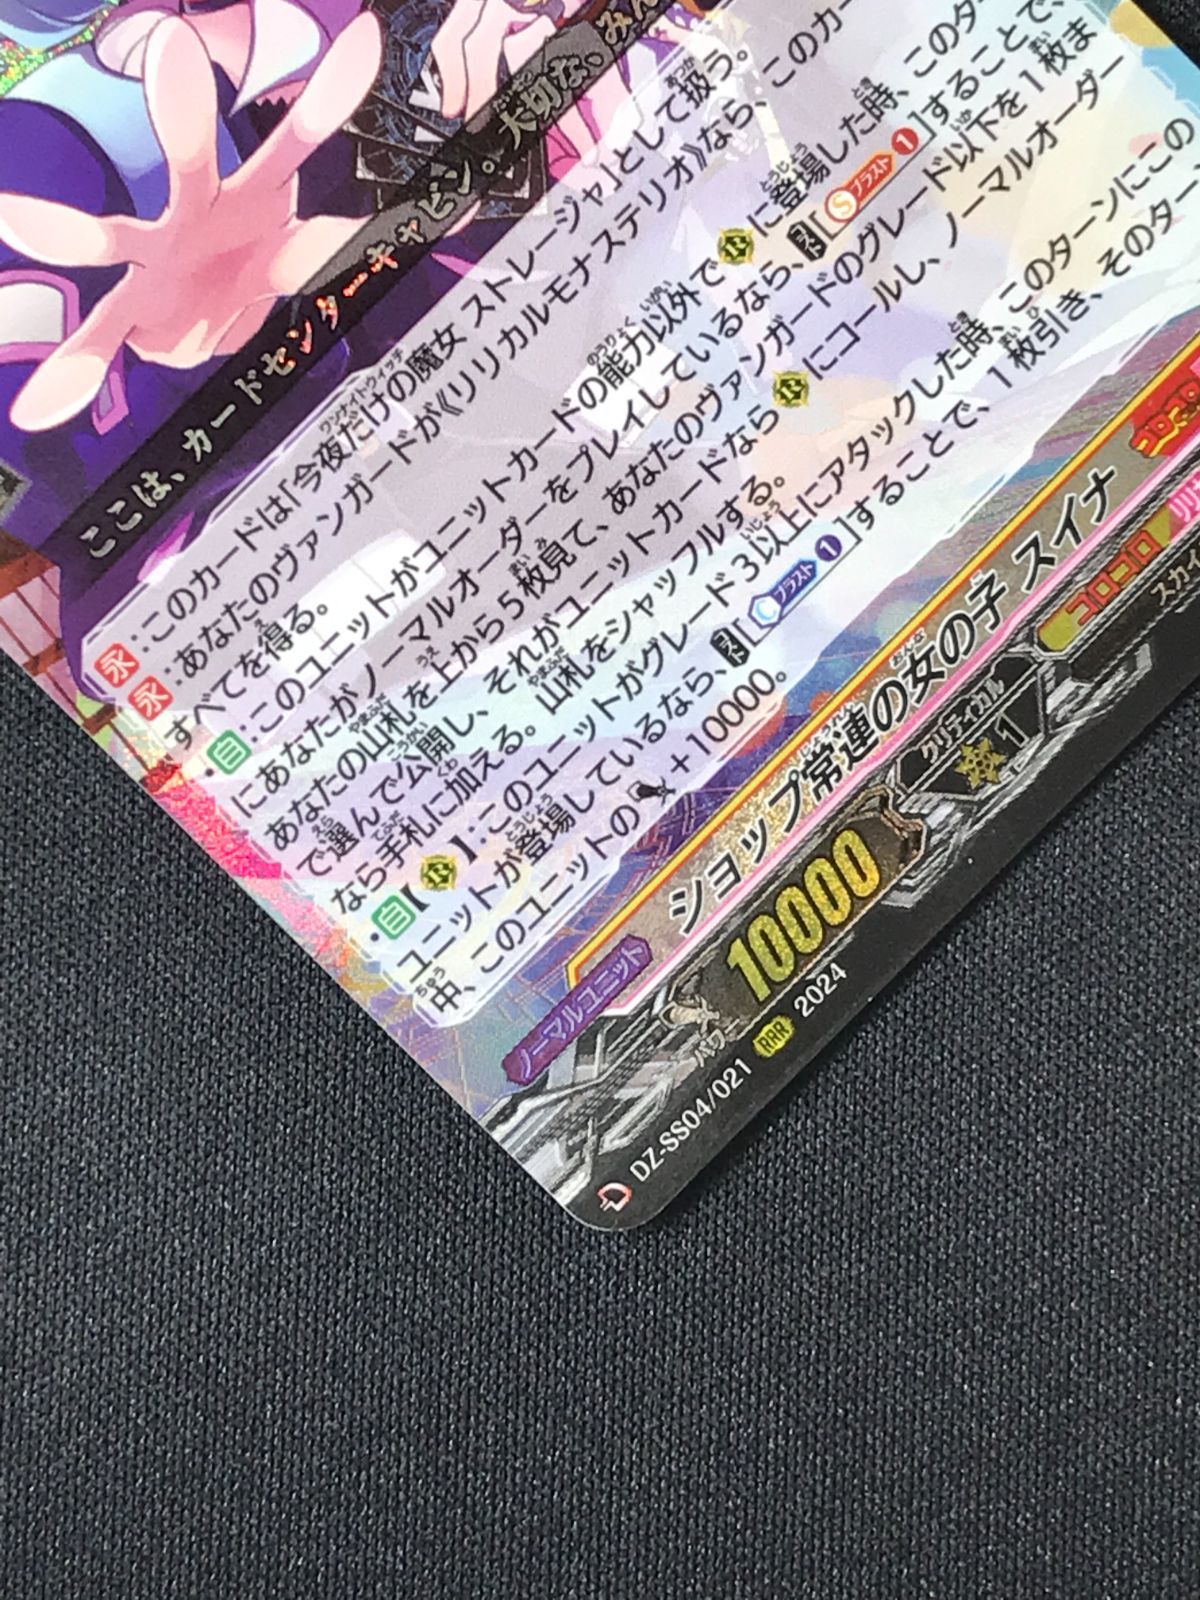 ここは、カードセンターキャビン。大切な、みん
永:このカードは「今夜だけの魔女 ストレージャ」として扱う。
永:あなたのヴァンガードが《リリカルモナステリオ》なら、このカー
すべてを得る。
・自:このユニットがユニットカードの能力以外でRに登場した時、このター
にあなたがノーマルオーダーをプレイしているなら、コスト[Sブラスト1]することで、
あなたの山札を上から5枚見て、あなたのヴァンガードのグレード以下を1枚ま
で選んで公開し、それがユニットカードならRにコールし、ノーマルオーダー
なら手札に加える。山札をシャッフルする。
・自【R】:このユニットがグレード3以上にアタックした時、このターンにこの
ユニットが登場しているなら、コスト[Cブラスト1]することで、1枚引き、そのター
中、このユニットの+10000。
ノーマルユニット
ショップ常連の女の子 スイナ
コロコロ
パワー 10000
クリティカル 1
コロコロ
スカイ
DZ-SS04/021 RRR 2024